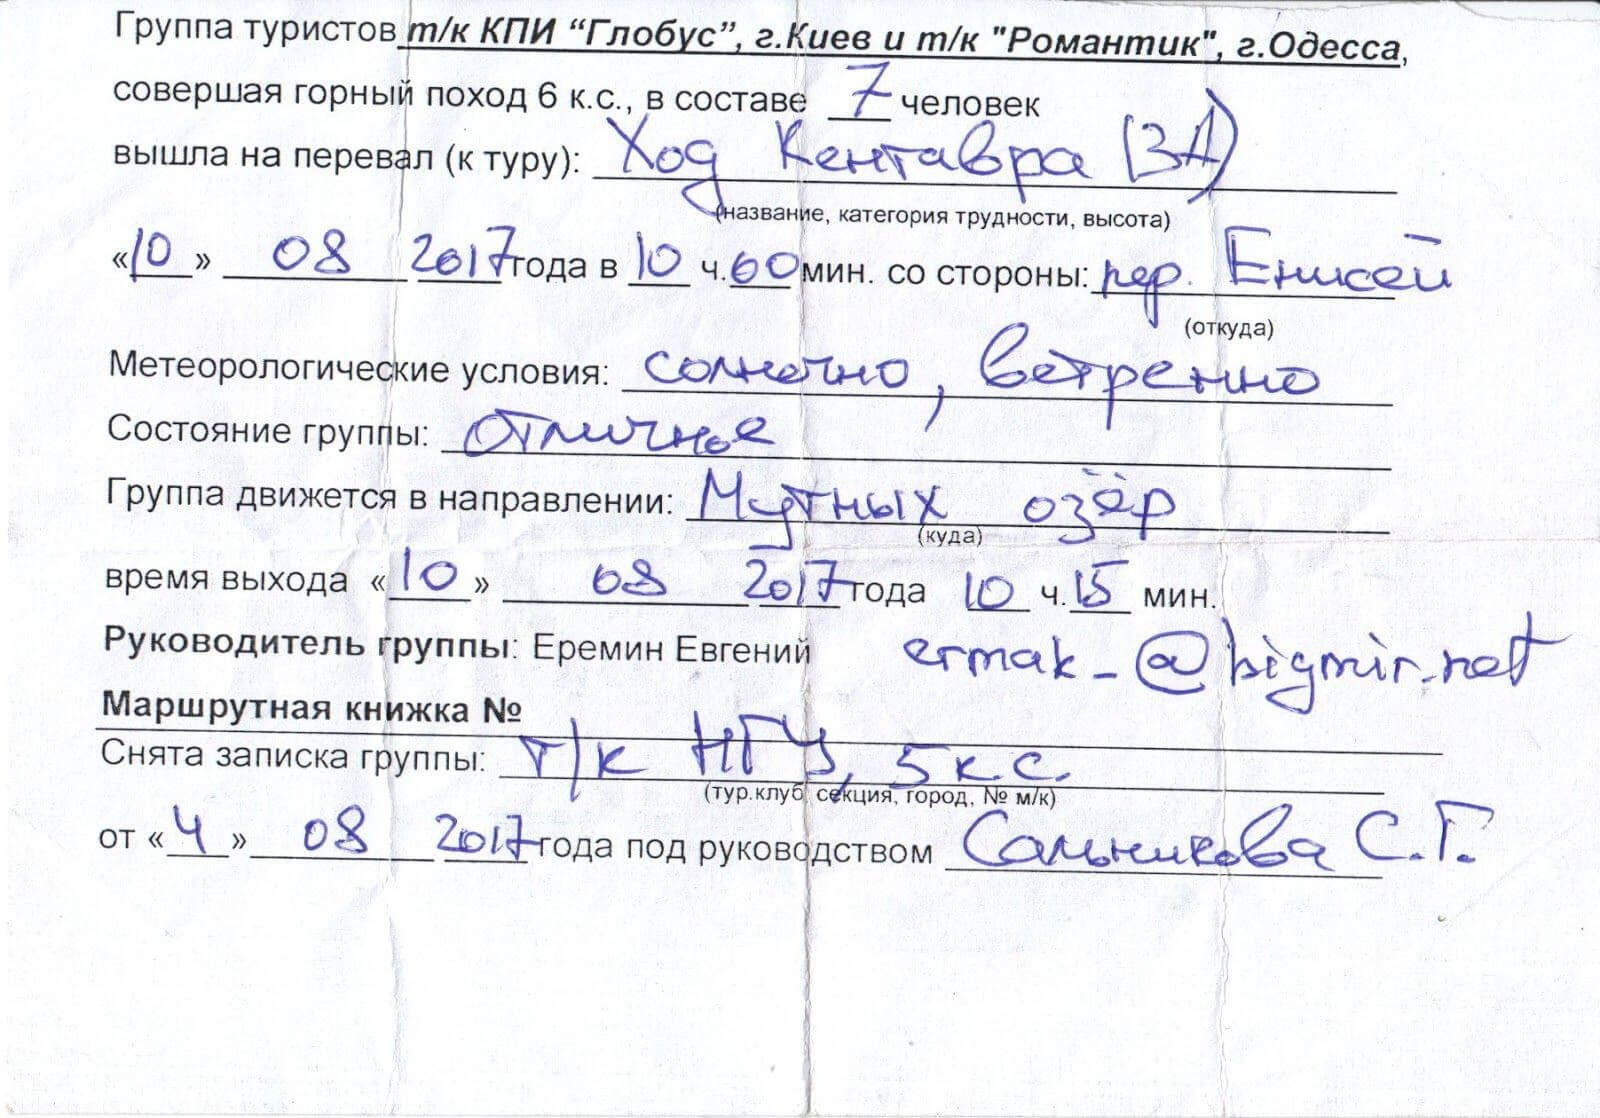 Группа туристов т/к КПИ “Глобус”, г.Киев и т/к "Романтик", г.Одесса,
совершая горный поход 6 к.с., в составе 7 человек
вышла на перевал (к туру): Ход Кентавра (3А)
(название, категория трудности, высота)
«10» 08 2017 года в 10 ч. 00 мин. со стороны: пер. Енисей
(откуда)
Метеорологические условия: солнечно, ветренно
Состояние группы: отличное
Группа движется в направлении: Мутных озёр
(куда)
время выхода «10» 08 2017 года 10 ч. 15 мин.
Руководитель группы: Еремин Евгений ermak_@bigmir.net
Маршрутная книжка №
Снята записка группы: т/к НГУ, 5 к.с.
(тур.клуб, секция, город, № м/к)
от «4» 08 2017 года под руководством Сальникова С.Г.